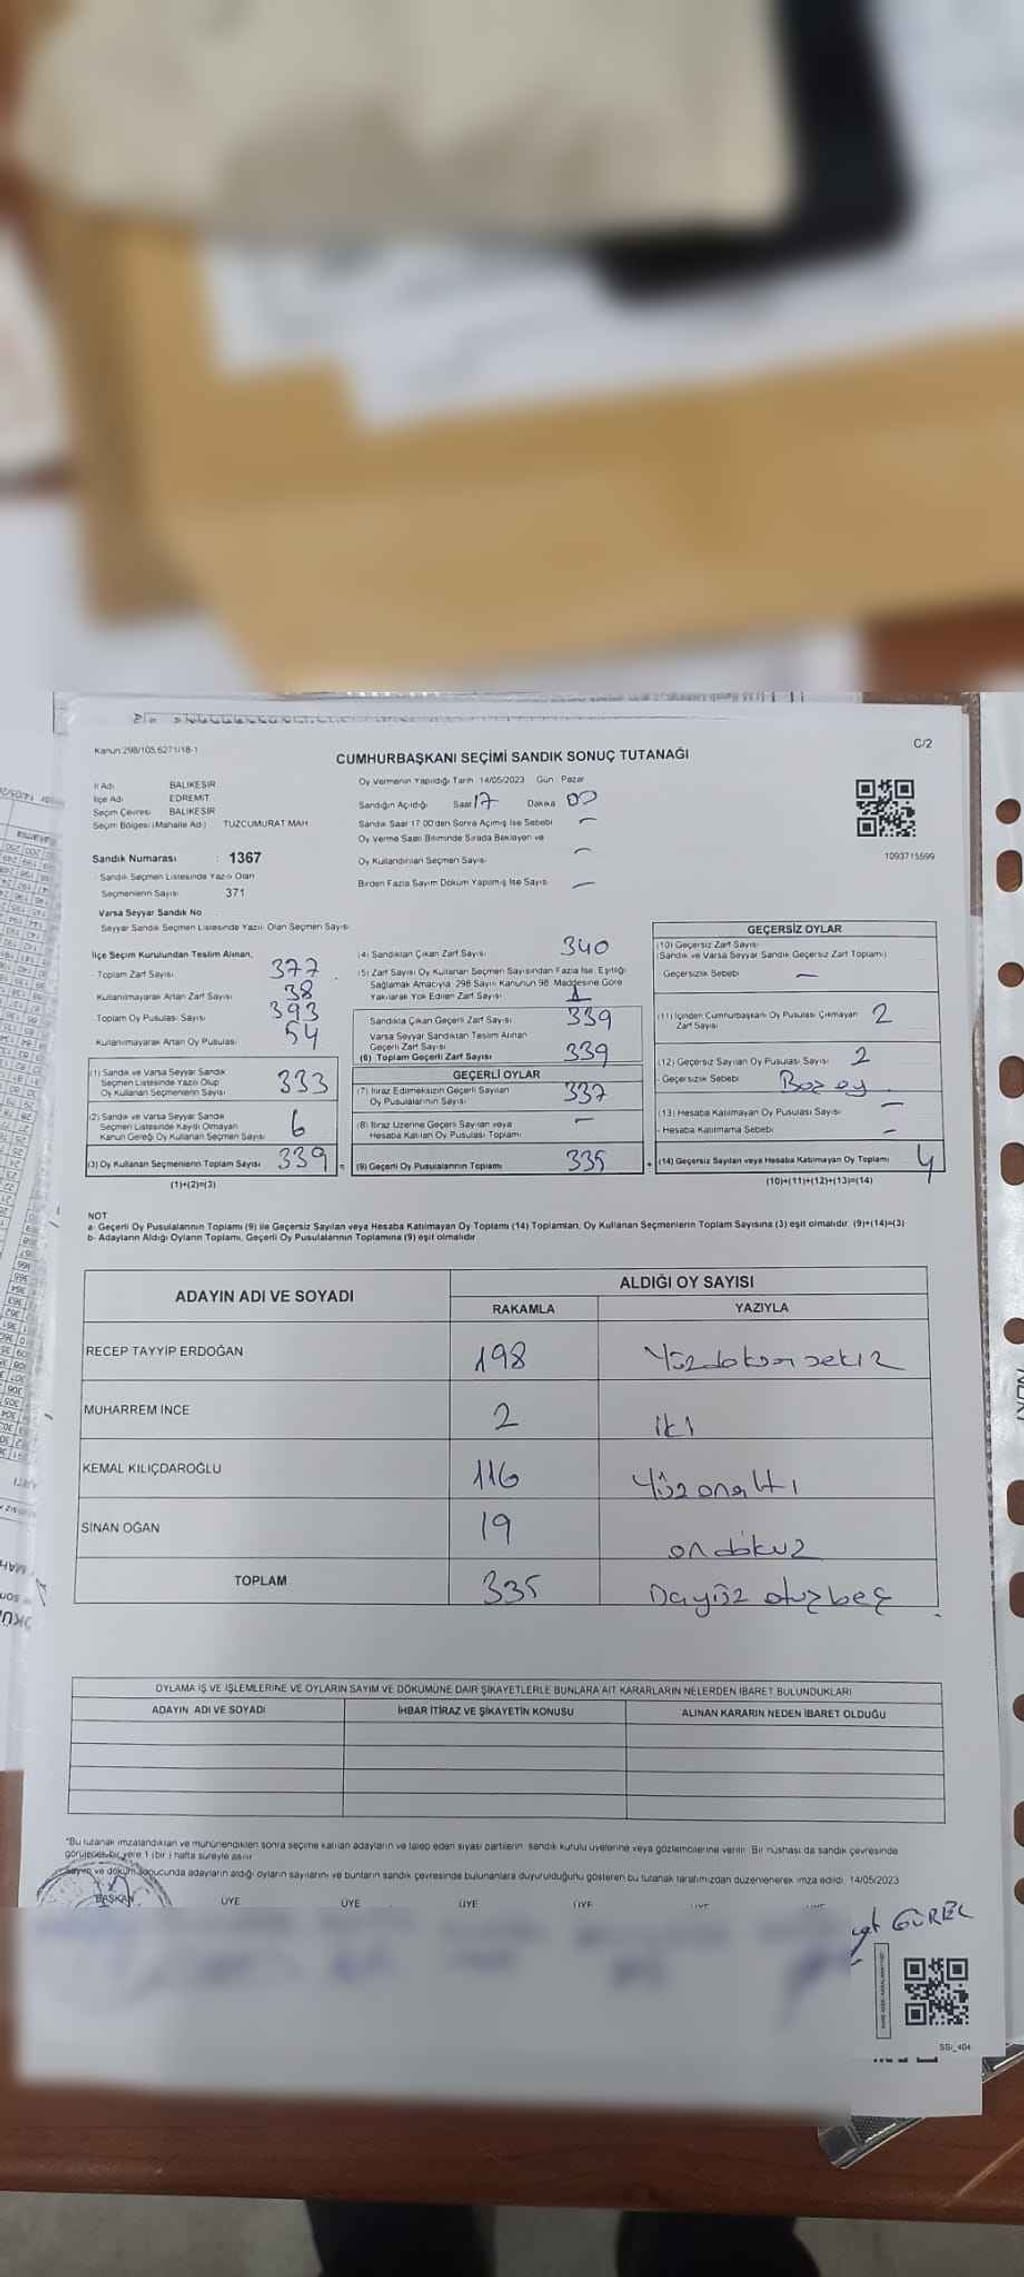 Kanun:298/105,6271/18-1
C/2
CUMHURBAŞKANI SEÇİMİ SANDIK SONUÇ TUTANAĞI
İl Adı BALIKESİR
İlçe Adı EDREMİT
Seçim Çevresi BALIKESİR
Seçim Bölgesi (Mahalle Adı) TUZCUMURAT MAH
Sandık Numarası : 1367
Sandık Seçmen Listesinde Yazılı Olan
Seçmenlerin Sayısı 371
Varsa Seyyar Sandık No
Seyyar Sandık Seçmen Listesinde Yazılı Olan Seçmen Sayısı
Oy Vermenin Yapıldığı Tarih 14/05/2023 Gün : Pazar
Sandığın Açıldığı Saat 17 Dakika 00
Sandık Saat 17.00'den Sonra Açılmış İse Sebebi –
Oy Verme Saati Bitiminde Sırada Bekleyen ve
Oy Kullandırılan Seçmen Sayısı –
Birden Fazla Sayım Döküm Yapılmış İse Sayısı –
1093715599
İlçe Seçim Kurulundan Teslim Alınan;
Toplam Zarf Sayısı 377
Kullanılmayarak Artan Zarf Sayısı 38
Toplam Oy Pusulası Sayısı 393
Kullanılmayarak Artan Oy Pusulası 54
(1) Sandık ve Varsa Seyyar Sandık
Seçmen Listesinde Yazılı Olup
Oy Kullanan Seçmenlerin Sayısı 333
(2) Sandık ve Varsa Seyyar Sandık
Seçmen Listesinde Kayıtlı Olmayan
Kanun Gereği Oy Kullanan Seçmen Sayısı 6
(3) Oy Kullanan Seçmenlerin Toplam Sayısı 339 =
(1)+(2)=(3)
(4) Sandıktan Çıkan Zarf Sayısı 340
(5) Zarf Sayısı Oy Kullanan Seçmen Sayısından Fazla İse, Eşitliği
Sağlamak Amacıyla 298 Sayılı Kanunun 98. Maddesine Göre
Yakılarak Yok Edilen Zarf Sayısı 1
Sandıkta Çıkan Geçerli Zarf Sayısı 339
Varsa Seyyar Sandıktan Teslim Alınan
Geçerli Zarf Sayısı
(6) Toplam Geçerli Zarf Sayısı 339
GEÇERLİ OYLAR
(7) İtiraz Edilmeksizin Geçerli Sayılan
Oy Pusulalarının Sayısı 337
(8) İtiraz Üzerine Geçerli Sayılan veya
Hesaba Katılan Oy Pusulası Toplamı –
(9) Geçerli Oy Pusulalarının Toplamı 335 +
GEÇERSİZ OYLAR
(10) Geçersiz Zarf Sayısı
(Sandık ve Varsa Seyyar Sandık Geçersiz Zarf Toplamı)
Geçersizlik Sebebi –
(11) İçinden Cumhurbaşkanı Oy Pusulası Çıkmayan
Zarf Sayısı 2
(12) Geçersiz Sayılan Oy Pusulası Sayısı 2
- Geçersizlik Sebebi Boz oy
(13) Hesaba Katılmayan Oy Pusulası Sayısı –
- Hesaba Katılmama Sebebi –
(14) Geçersiz Sayılan veya Hesaba Katılmayan Oy Toplamı 4
(10)+(11)+(12)+(13)=(14)
NOT
a- Geçerli Oy Pusulalarının Toplamı (9) ile Geçersiz Sayılan veya Hesaba Katılmayan Oy Toplamı (14) Toplamları, Oy Kullanan Seçmenlerin Toplam Sayısına (3) eşit olmalıdır. (9)+(14)=(3)
b- Adayların Aldığı Oyların Toplamı, Geçerli Oy Pusulalarının Toplamına (9) eşit olmalıdır
ADAYIN ADI VE SOYADI
ALDIĞI OY SAYISI
RAKAMLA YAZIYLA
RECEP TAYYİP ERDOĞAN 198 Yüzdoksan sekiz
MUHARREM İNCE 2 iki
KEMAL KILIÇDAROĞLU 116 Yüzonaltı
SİNAN OĞAN 19 ondokuz
TOPLAM 335 otuzbeş
OYLAMA İŞ VE İŞLEMLERİNE VE OYLARIN SAYIM VE DÖKÜMÜNE DAİR ŞİKAYETLERLE BUNLARA AİT KARARLARIN NELERDEN İBARET BULUNDUKLARI
ADAYIN ADI VE SOYADI İHBAR İTİRAZ VE ŞİKAYETİN KONUSU ALINAN KARARIN NEDEN İBARET OLDUĞU
*Bu tutanak imzalandıktan ve mühürlendikten sonra seçime katılan adayların ve talep eden siyasi partilerin sandık kurulu üyelerine veya gözlemcilerine verilir. Bir nüshası da sandık çevresinde
görülecek bir yere 1 (bir) hafta süreyle asılır
Sayım ve döküm sonucunda adayların aldığı oyların sayılarını ve bunların sandık çevresinde bulunanlara duyurulduğunu gösteren bu tutanak tarafımızdan düzenlenerek imza edildi. 14/05/2023
BAŞKAN ÜYE ÜYE ÜYE ÜYE
GÜREL
SSI_404